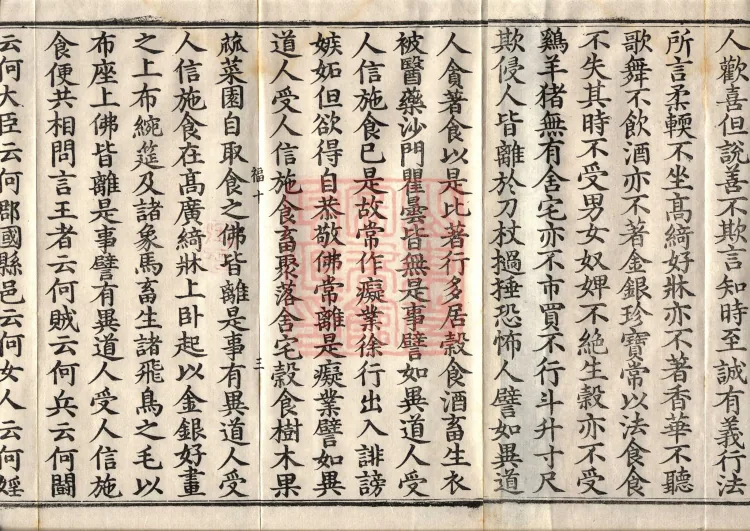 人歡喜但說善不欺言知時至誠有義行法
所言柔輭不坐髙綺好牀亦不著香華不聽
歌舞不飲酒亦不著金銀珍寶常以法食食
不失其時不受男女奴婢不絶生穀亦不受
鷄羊猪無有舍宅亦不市買不行斗升寸尺
欺侵人皆離於刀杖撾捶恐怖人譬如異道
人貪著食以是比著行多居穀食酒畜生衣
被醫藥沙門瞿曇皆無是事譬如異道人受
人信施食已是故常作癡業徐行出入誹謗
嫉妬但欲得自恭敬佛常離是癡業譬如異
道人受人信施食畜聚落舍宅穀食樹木果
蓏菜園自取食之佛皆離是事有異道人受
福十 三
人信施食在髙廣綺牀上卧起以金銀好畫
之上布綩莚及諸象馬畜生諸飛鳥之毛以
布座上佛皆離是事譬有異道人受人信施
食便共相問言王者云何賊云何兵云何鬪
云何大臣云何郡國縣邑云何女人云何婬